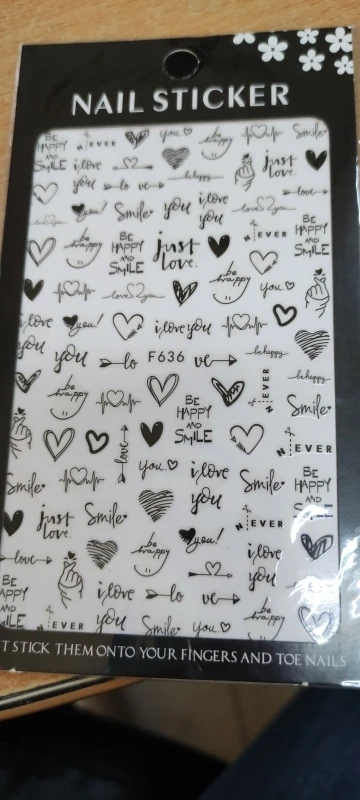 NAIL STICKER
BE HAPPY AND SMILE
NEVER
you
be happy
Smile
i love you
just love
lo ve
behappy
love
you!
Smile
you
i love you
love you
NEVER
BE HAPPY AND SMILE
be happy
BE HAPPY AND SMILE
just love.
be happy
love you
you
i love you
you!
i love you
behappy
you
lo
F636
ve
be happy
NEVER
BE HAPPY AND SMILE
Smile
love
NEVER
you
i love you
Smile
BE HAPPY AND SMILE
Smile
just love.
Smile
NEVER
be happy
you!
i love you
love
BE HAPPY AND SMILE
i love you
lo ve
be happy
NEVER
Smile
you
T STICK THEM ONTO YOUR FINGERS AND TOE NAILS